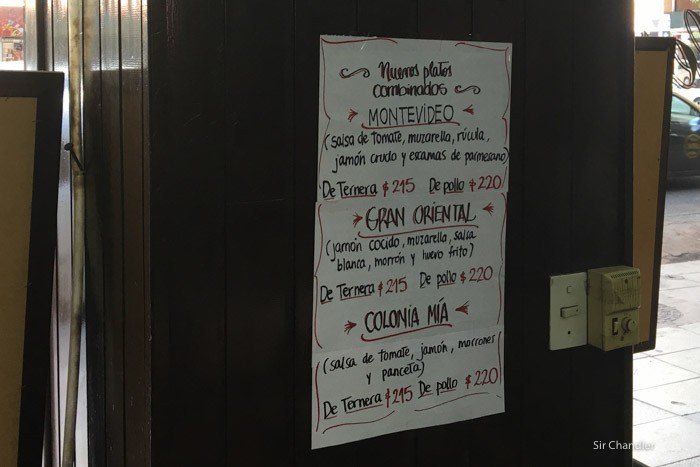 Nuevos platos
combinados
MONTEVIDEO
(salsa de tomate, muzarella, rúcula,
jamón crudo y escamas de parmesano)
De Ternera $215 De pollo $220
GRAN ORIENTAL
(jamón cocido, muzarella, salsa
blanca, morrón y huevo frito)
De Ternera $215 De pollo $220
COLONIA MÍA
(salsa de tomate, jamón, morrones
y panceta)
De Ternera $215 De pollo $220
Sir Chandler